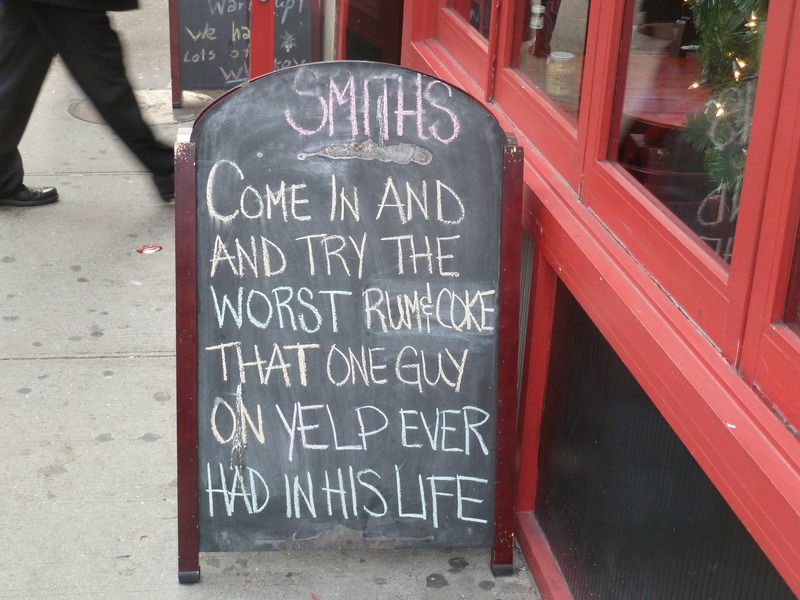 we ha
Lots of
SMITHS
COME IN AND
AND TRY THE
WORST RUM & COKE
THAT ONE GUY
ON YELP EVER
HAD IN HIS LIFE